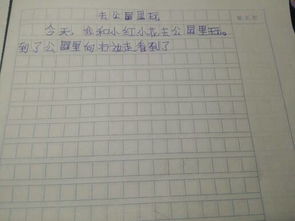 去公园里玩
今天,我和小红小花去公园里玩。
到了公园里向右边走看到了